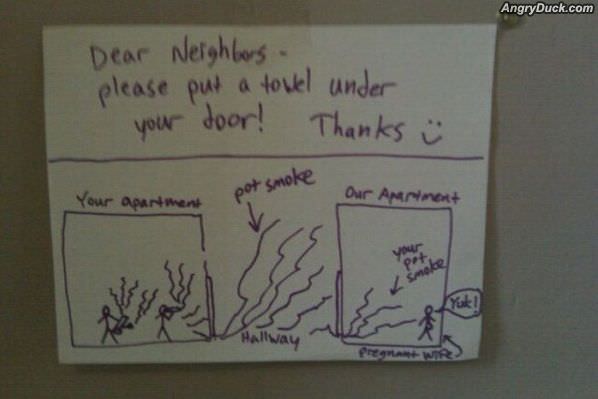 AngryDuck.com
Dear Neighbors -
please put a towel under
your door! Thanks
pot smoke
Your apartment
Our Apartment
your
pot
smoke
Yuk!
Hallway
pregnant wife